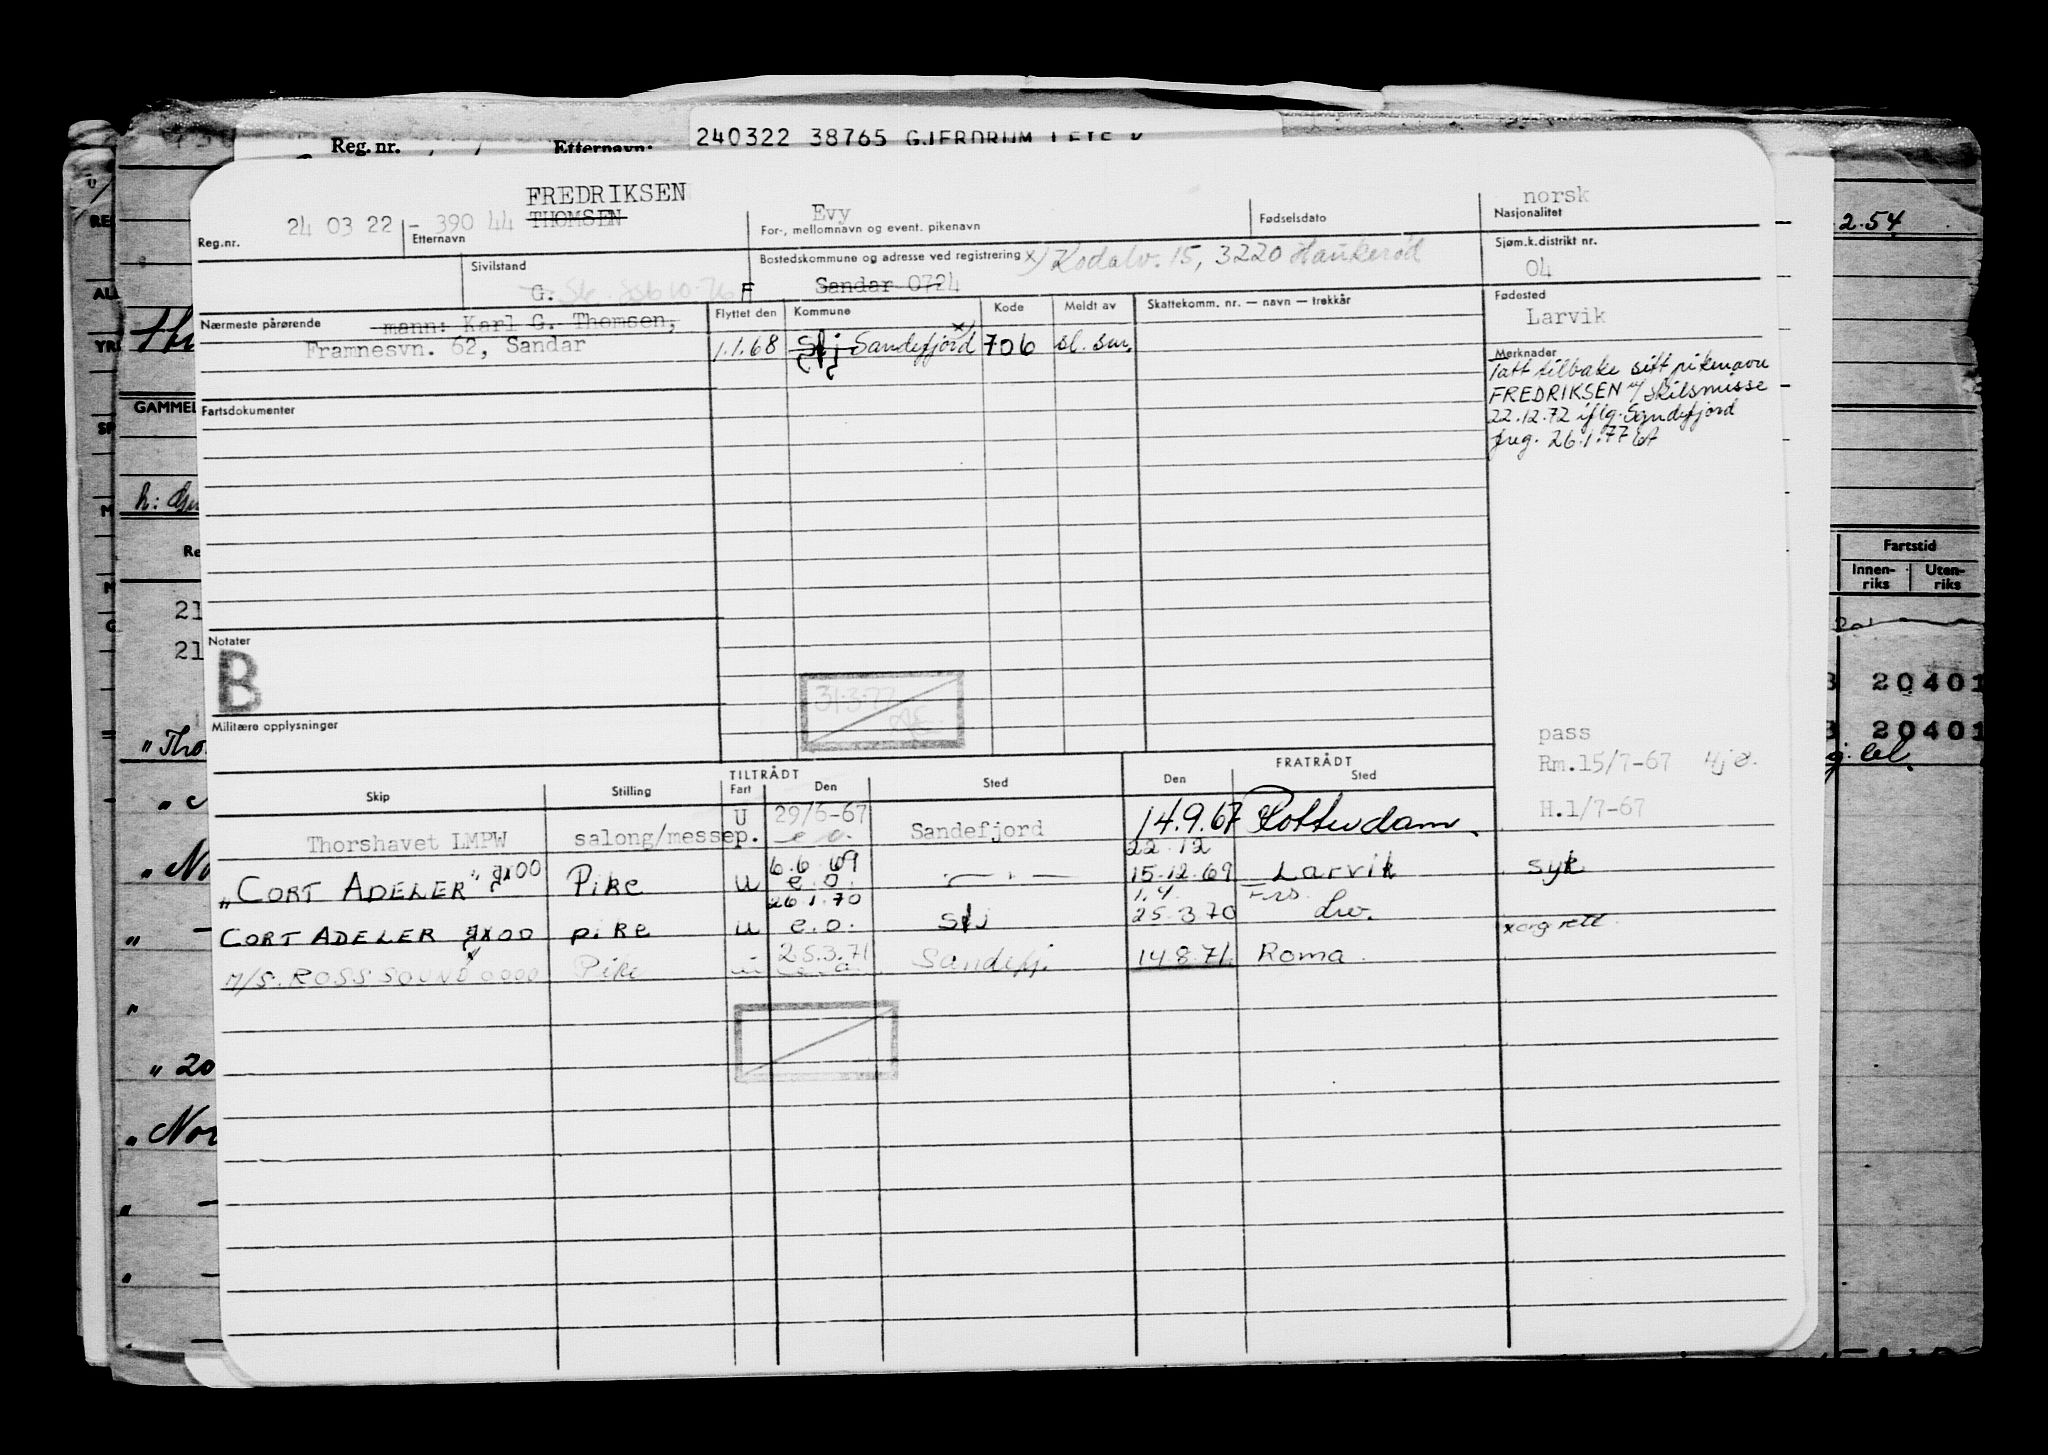 240322 38765 GJERDRUM LEIF
Reg. nr. Etternavn:
FREDRIKSEN
24 03 22 - 390 44 THOMSEN Evy norsk
Reg.nr. Etternavn For-, mellomnavn og event. pikenavn Fødselsdato Nasjonalitet
Sivilstand Bostedskommune og adresse ved registrering x) Kodalv. 15, 3220 Haukerød Sjøm.k.distrikt nr.
G. F Sandar 0724 04
Nærmeste pårørende mann: Karl G. Thomsen, Flyttet den Kommune Kode Meldt av Skattekomm. nr. — navn — trekkår Fødested
Framnesvn. 62, Sandar Larvik
1.1.68 Sfj Sandefjord x) 706 sl. sm.
Merknader
Tatt tilbake sitt pikenavn
FREDRIKSEN v/ skilsmisse
22.12.72 iflg. Sandefjord
freg. 26.1.77
Fartsdokumenter
Notater
B
31.3.77
Militære opplysninger
pass
Rm.15/7-67
TILTRÅDT FRATRÅDT
Skip Stilling Fart Den Sted Den Sted
H.1/7-67
Thorshavet LMPW salong/messep. U 29/6-67 e.o. Sandefjord 14.9.67 Rotterdam
22.12
"CORT ADELER" JX00 Pike u 6.6.69 e.o. — " — 15.12.69 Larvik syk
1.4 Frs.
CORT ADELER JX00 pike u 26.1.70 e.o. Sfj 25.3.70 Lw. x org rett
M/S. ROSS SOUND 0000 Pike u 25.3.71 e.o. Sandefj. 14.8.71 Roma
2.54
GAMMEL
Fartstid
Innen-riks Uten-riks
20401
20401
21
21
"Tho
"No
"20
"Nor